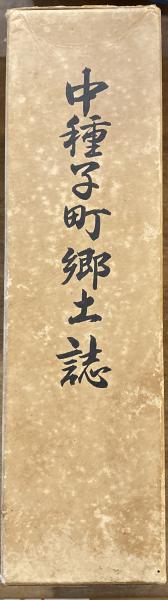 中種子町郷土誌